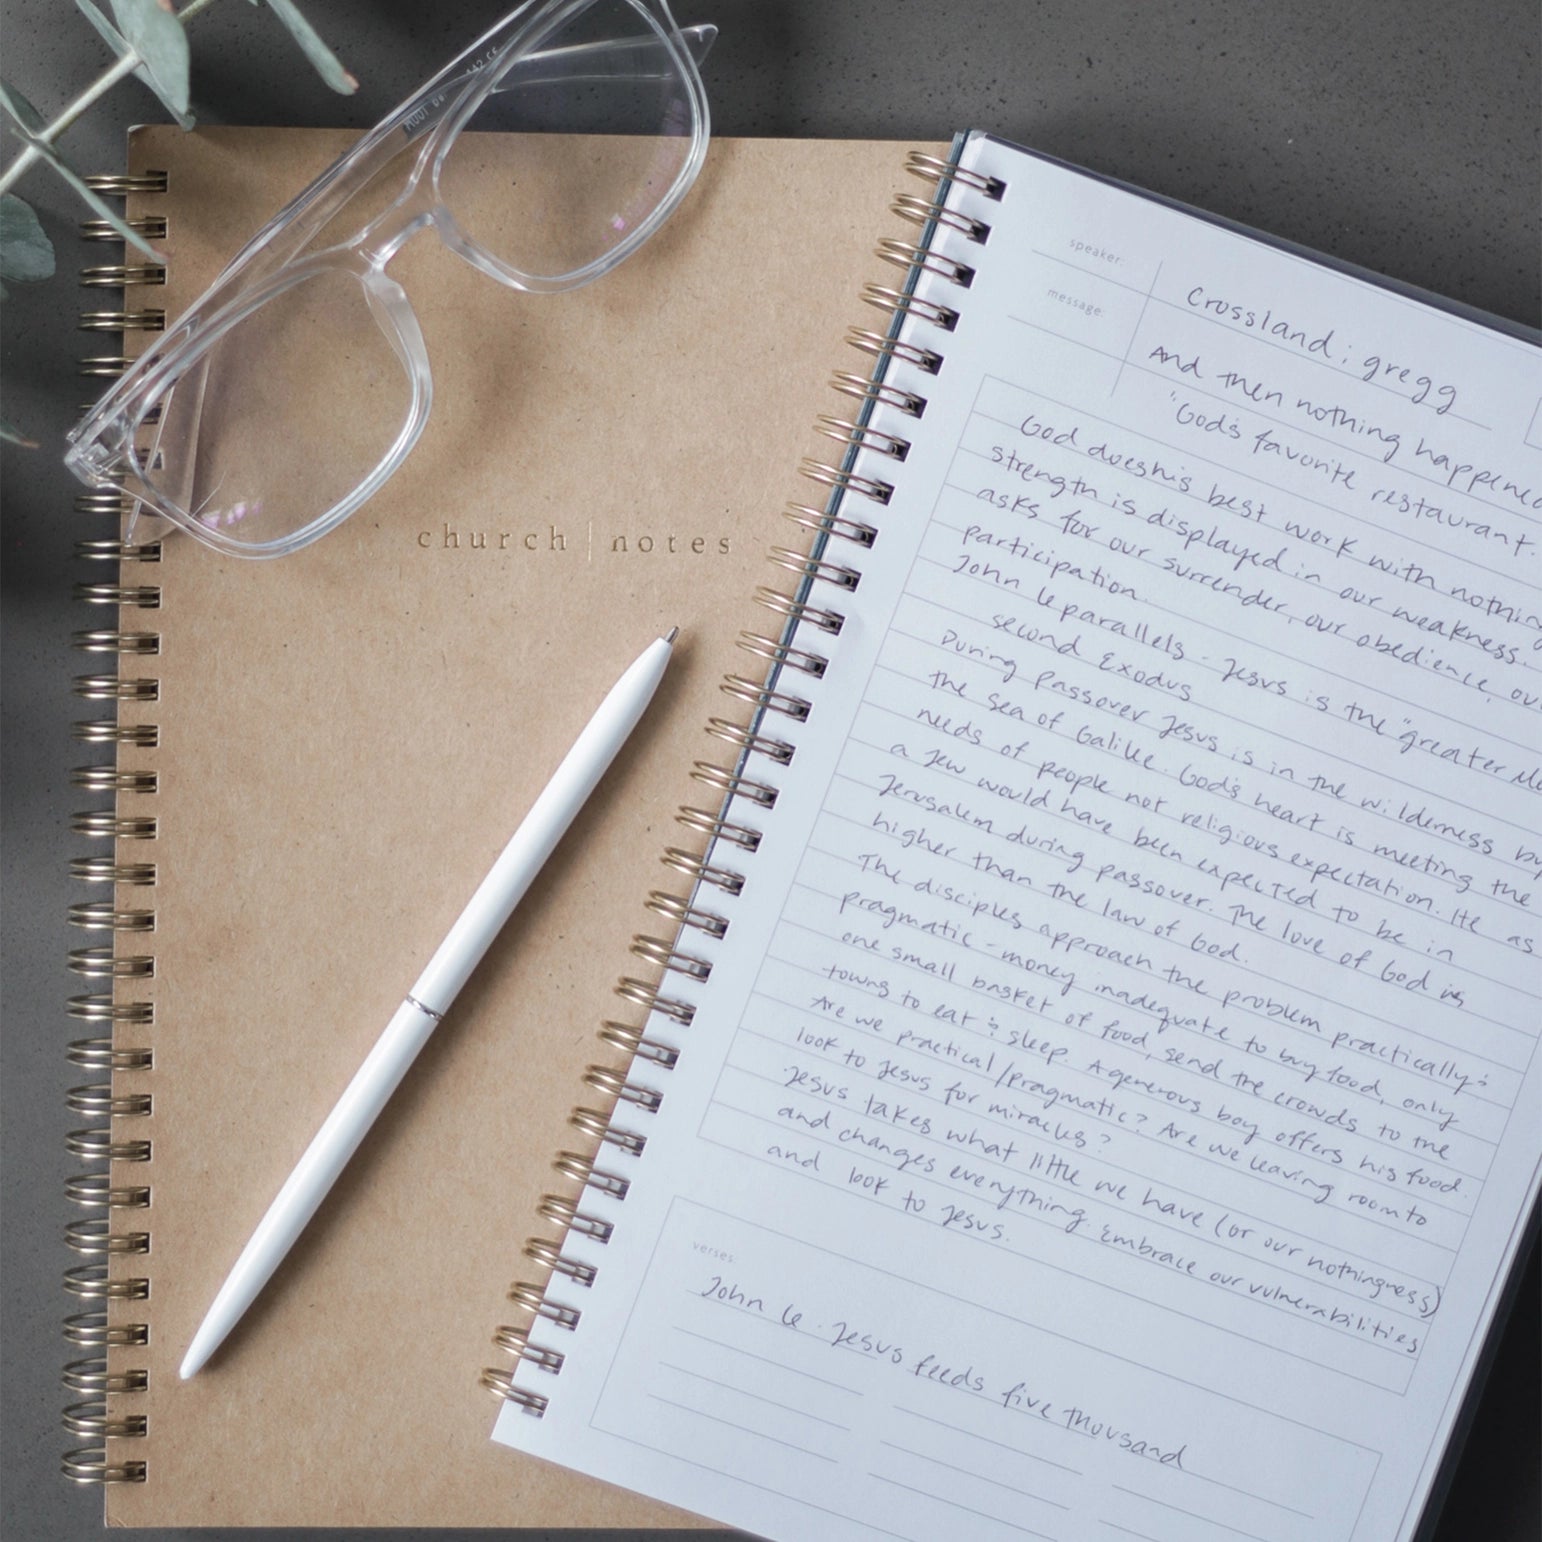 church | notes
speaker:
Crossland; gregg
message:
And then nothing happened
"God's favorite restaurant.
God does his best work with nothing
strength is displayed in our weakness.
asks for our surrender, our obedience, our
participation.
John 6 parallels - Jesus is the "greater
second Exodus
During Passover Jesus is in the wilderness by
the Sea of Galilee. God's heart is meeting the
needs of people not religious expectation. He as
a Jew would have been expected to be in
Jerusalem during passover. The love of God is
higher than the law of God.
The disciples approach the problem practically &
pragmatic - money inadequate to buy food, only
one small basket of food, send the crowds to the
towns to eat & sleep. A generous boy offers his food.
Are we practical/pragmatic? Are we leaving room to
look to Jesus for miracles?
Jesus takes what little we have (or our nothingness)
and changes everything. Embrace our vulnerabilities
and look to Jesus.
verses:
John 6 . Jesus feeds five thousand